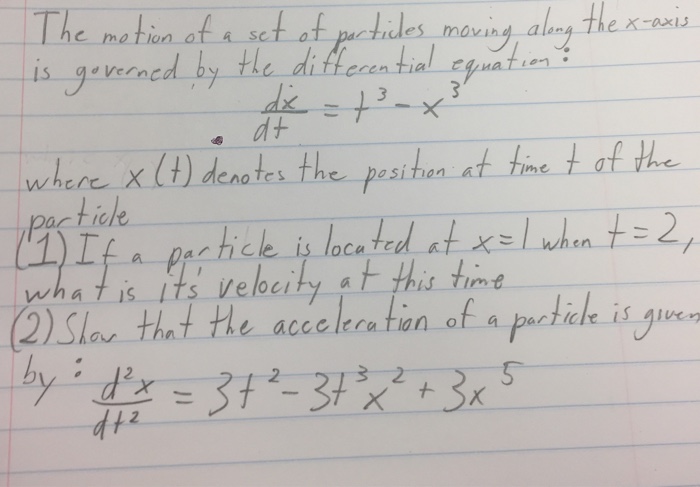 The motion of a set of particles moving along the x-axis
is governed by the differential equation:
dx/dt = t³ - x³
where x(t) denotes the position at time t of the
particle
(1) If a particle is located at x=1 when t=2,
what is it's velocity at this time
(2) Show that the acceleration of a particle is given
by: d²x/dt² = 3t² - 3t³x² + 3x⁵